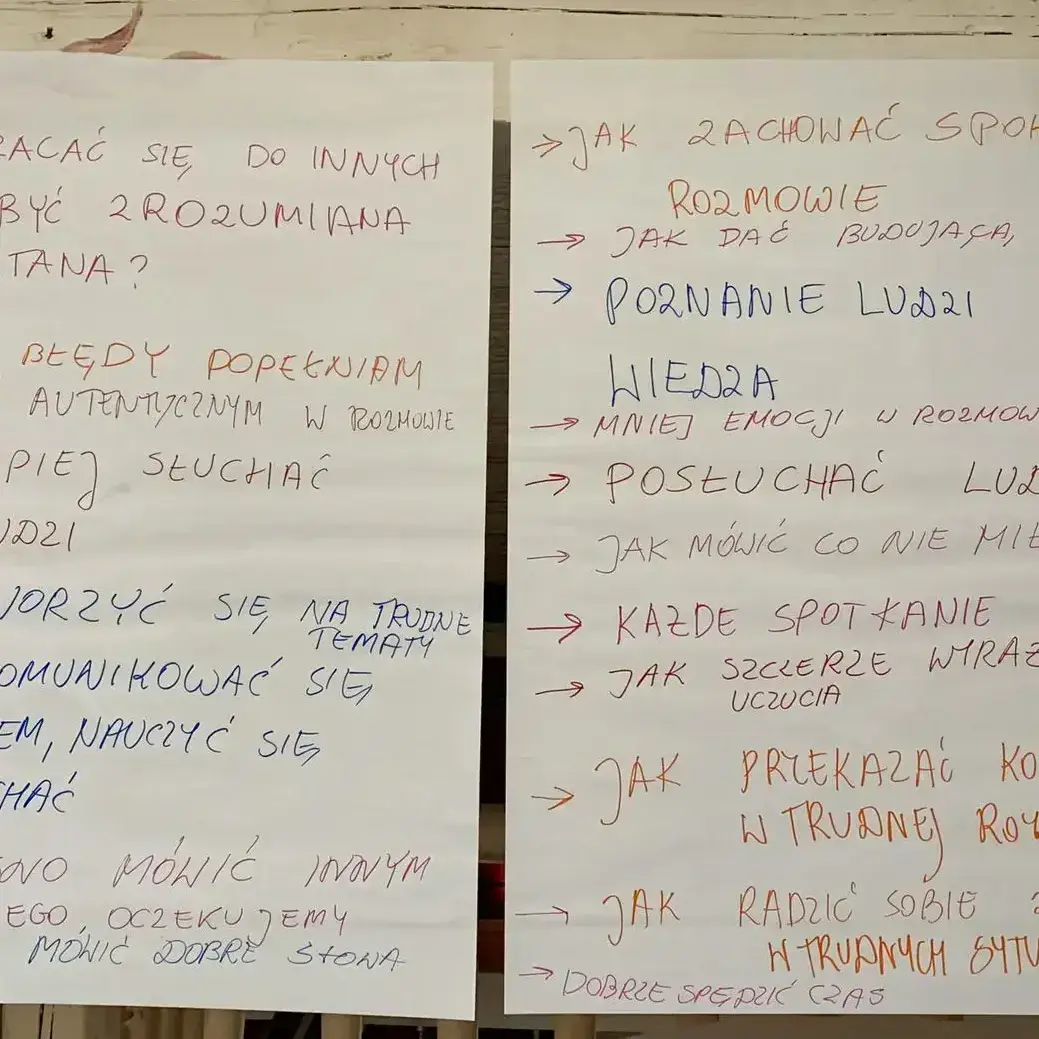 RACAĆ SIĘ DO INNYCH
BYĆ ZROZUMIANA
TANA?
BŁĘDY POPEŁNIAM
AUTENTYCZNYM W ROZMOWIE
PIEJ SŁUCHAĆ
UDZI
WORZYĆ SIĘ NA TRUDNE
TEMATY
OMUNIKOWAĆ SIĘ
EM, NAUCZYĆ SIĘ
HAĆ
MÓWIĆ INNYM
EGO OCZEKUJEMY
MÓWIĆ DOBRE SŁOWA
→ JAK ZACHOWAĆ SPOK
ROZMOWIE
→ JAK DAĆ BUDUJĄCĄ,
→ POZNANIE LUDZI
WIEDZA
→ MNIEJ EMOCJI W ROZMOW
→ POSŁUCHAĆ LUD
→ JAK MÓWIĆ CO NIE MIE
→ KAŻDE SPOTKANIE
→ JAK SZCZERZE WYRAZ
UCZUCIA
→ JAK PRZEKAZAĆ KO
W TRUDNEJ ROZ
→ JAK RADZIĆ SOBIE
W TRUDNYCH SYTU
→ DOBRZE SPĘDZIĆ CZAS